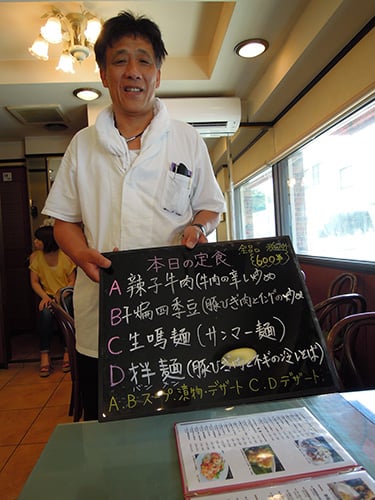 本日の定食
全品
600円
A 辣子牛肉(牛肉の辛し炒め
B 干煸四季豆(豚ひき肉といんげんの炒め
C 生嗎麺(サンマー麺)
D 拌麺(豚ひき肉とネギの冷しそば)
A.B.スープ.漬物.デザート C.D.デザート.